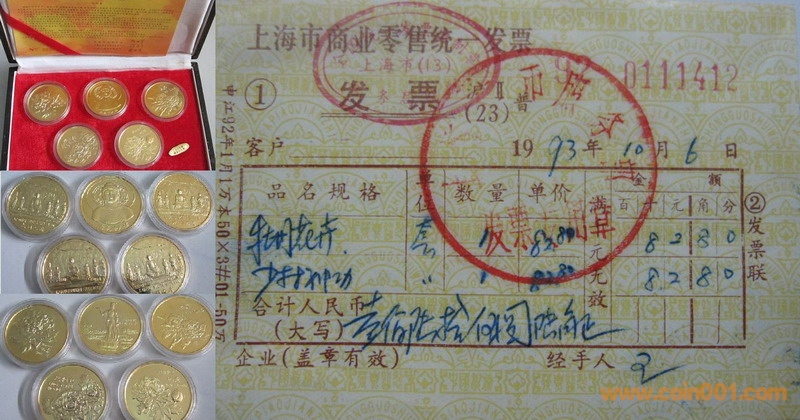 上海市商业零售统一发票
上海市(13)
① 发票 沪Ⅱ普
(23)
0111412
客户
1993年10月6日
品名规格 单位 数量 单价 满万元无效 金额
百十元角分
牡丹花卉 套 1 82.80 8 2 8 0
〃 1 82.80 8 2 8 0
合计人民币
(大写) 壹佰陆拾伍圆陆角正
企业(盖章有效) 经手人 王
② 发票联
发票专用章
申江92年1月1万本50×3#01-50万
www.coin001.com